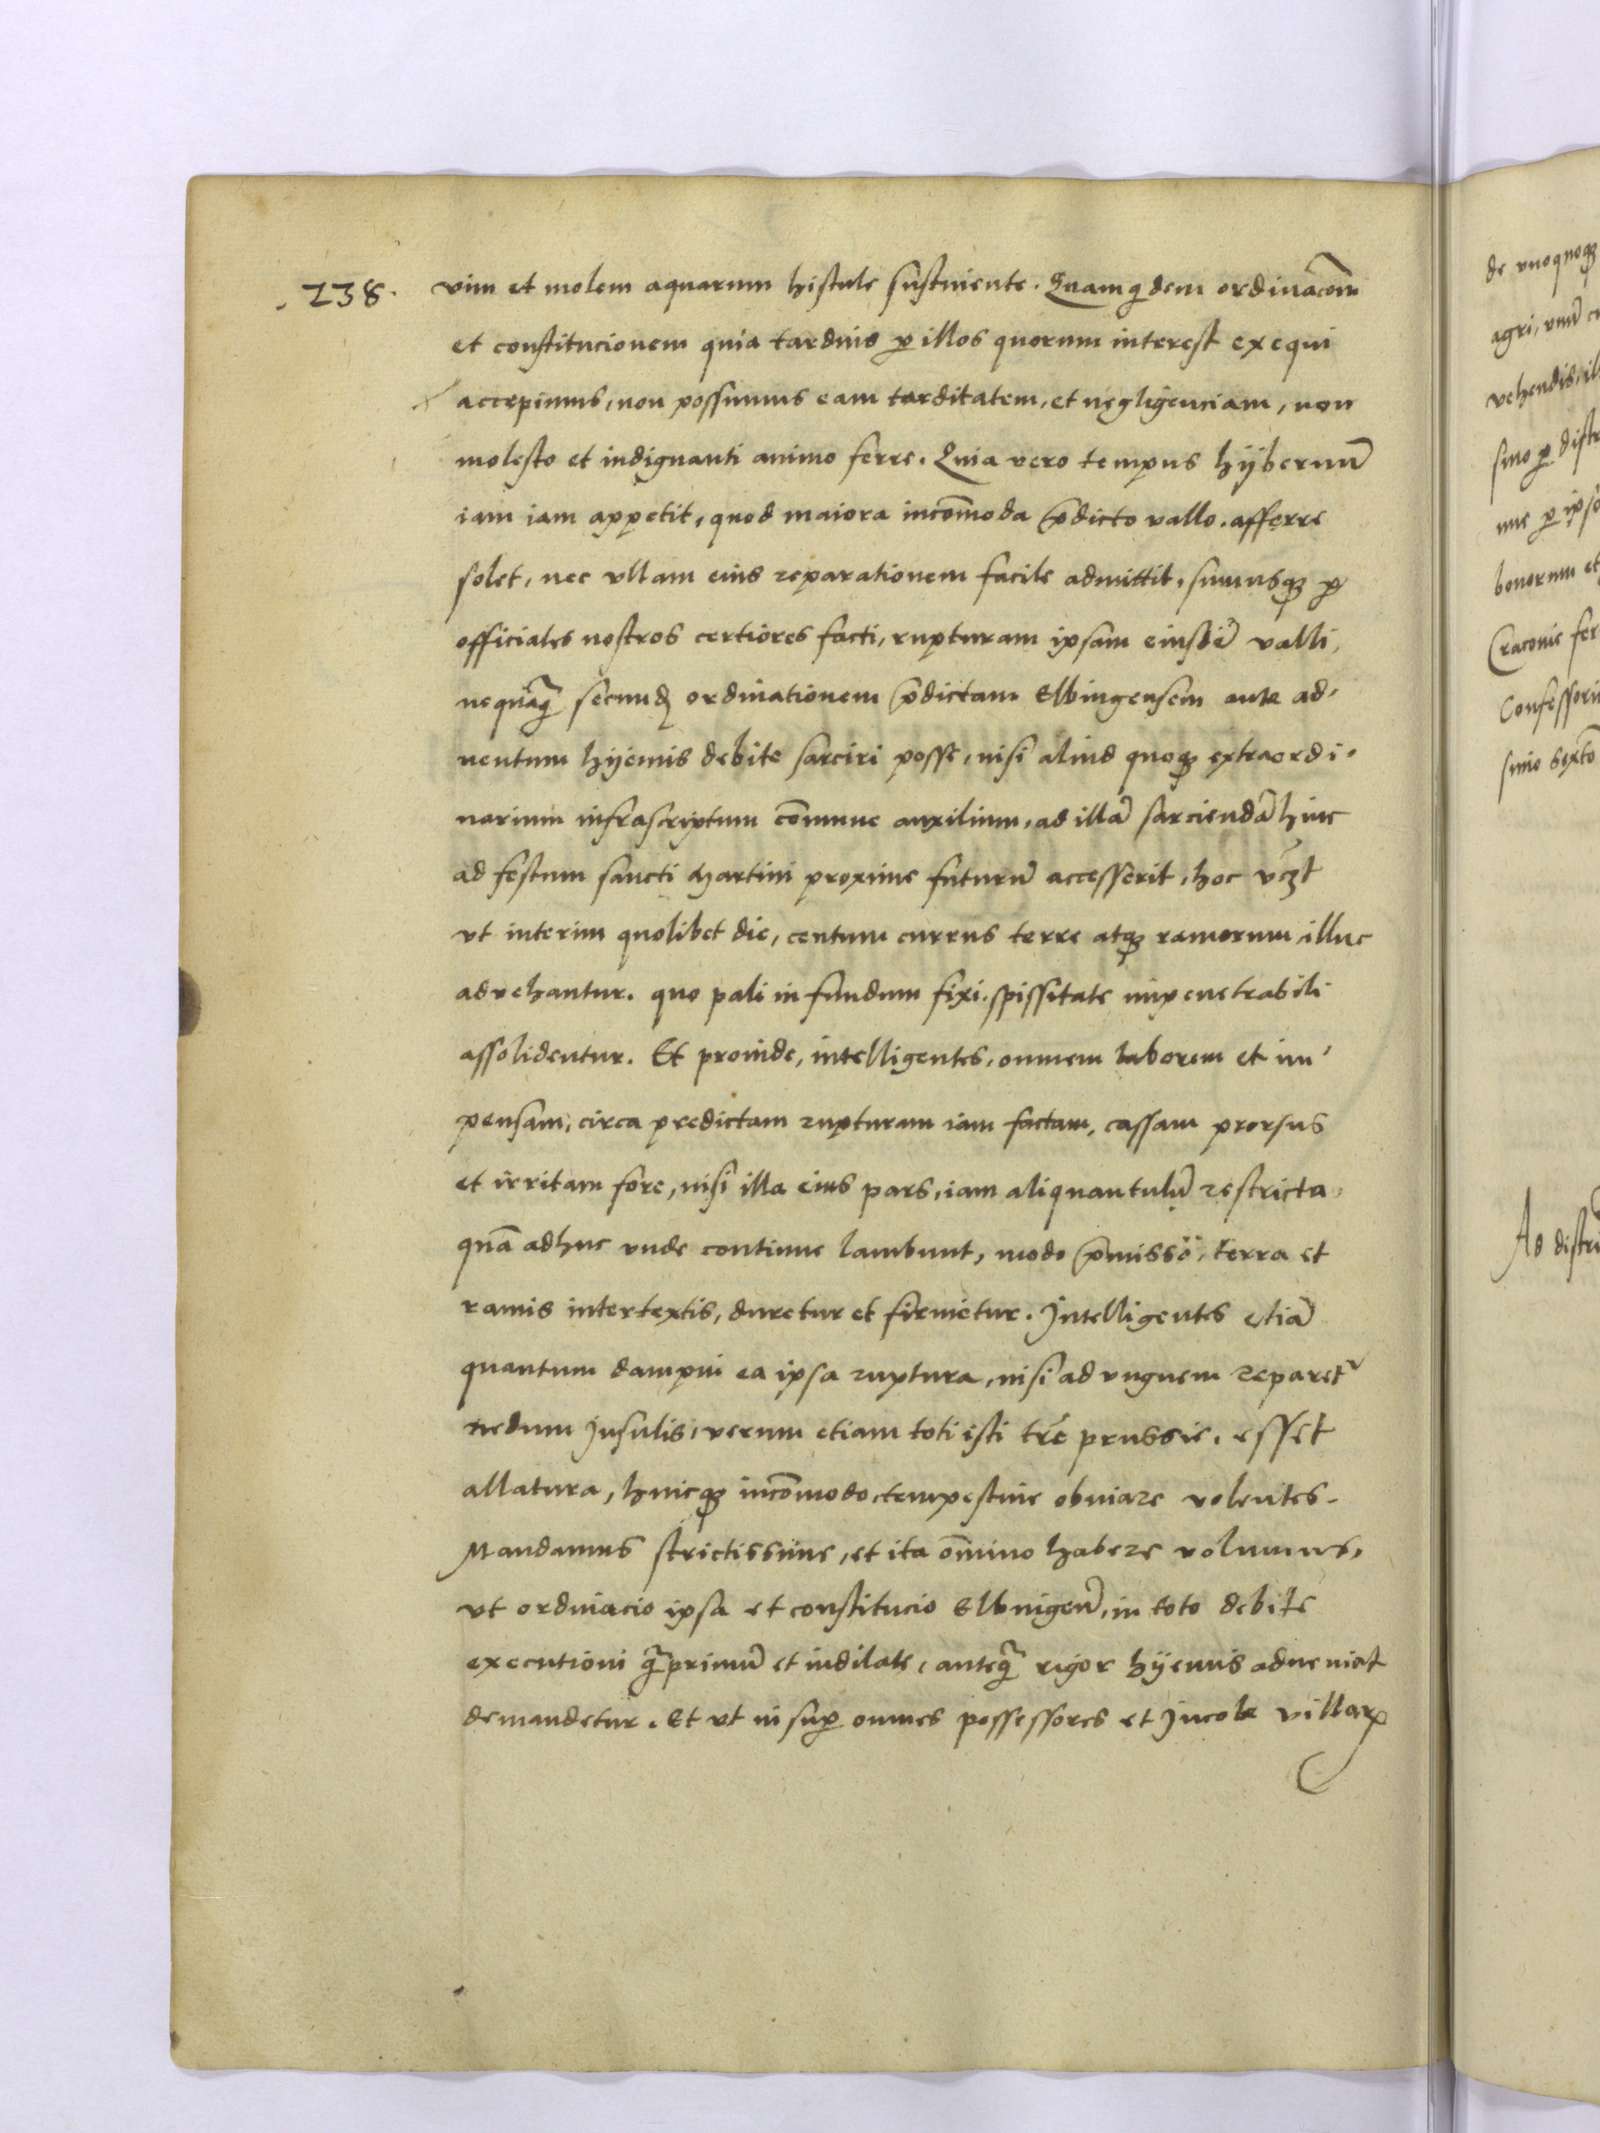 .238.
vim et molem aquarum histule sustinente. Quamquidem ordinacōm
et constitucionem quia tardius ꝑ illos quorum interest exequi
accepimus, non possumus eam tarditatem, et negligenciam, non
molesto et indignanti animo ferre. Quia vero tempus hÿbernū
iam iam appetit, quod maiora incōmoda p̄dicto vallo. afferre
solet, nec vllam eius reparationem facile admittit, sumusqꝫ ꝑ
officiales nostros certiores facti, rupturam ipsam eiusdē valli,
nequāq̄ secundꝫ ordinationem p̄dictam Elbingensem ante ad-
uentum hÿemis debite sarciri posse, nisi aliud quoqꝫ extraordi-
narium infrascriptum cōmune auxilium, ad illā sarciendā hinc
ad festum sancti Martini proxime futurū accesserit, hoc vꝫt
vt interim quolibet die, centum currus terre atqꝫ ramorum illuc
advehantur. quo pali in fundum fixi. spissitate impenetrabili
assolidentur. Et proinde, intelligentes, omnem laborem et im-
pensam, circa predictam rupturam iam factam, cassam prorsus
et irritam fore, nisi illa eius pars, iam aliquantulū restricta,
quā adhuc vnde continue lambunt, modo p̄misso, terra et
ramis intertextis, duretur et firmetur. Intelligentes etiā
quantum dampni ea ipsa ruptura, nisi ad vnguem reparet᷑
nedum Insulis, verum etiam toti isti tr̄e prussie. esset
allatura, huicqꝫ incōmodo tempestiue obuiare volentes.
Mandamus strictissime, et ita om̄ino habere volumus,
vt ordinacio ipsa et constitucio Elbingen̄, in toto debite
executioni q̄primū et indilate, anteq̄ rigor hÿemis adueniat
demandetur. Et vt insuꝑ omnes possessores et Incole villaꝝ
de vnoquoqꝫ
agri, vnū
vehendis, il
sino ꝑ
ꝑ
bonorum et
Cracovie fer
Confessori
simo sexto
Ad